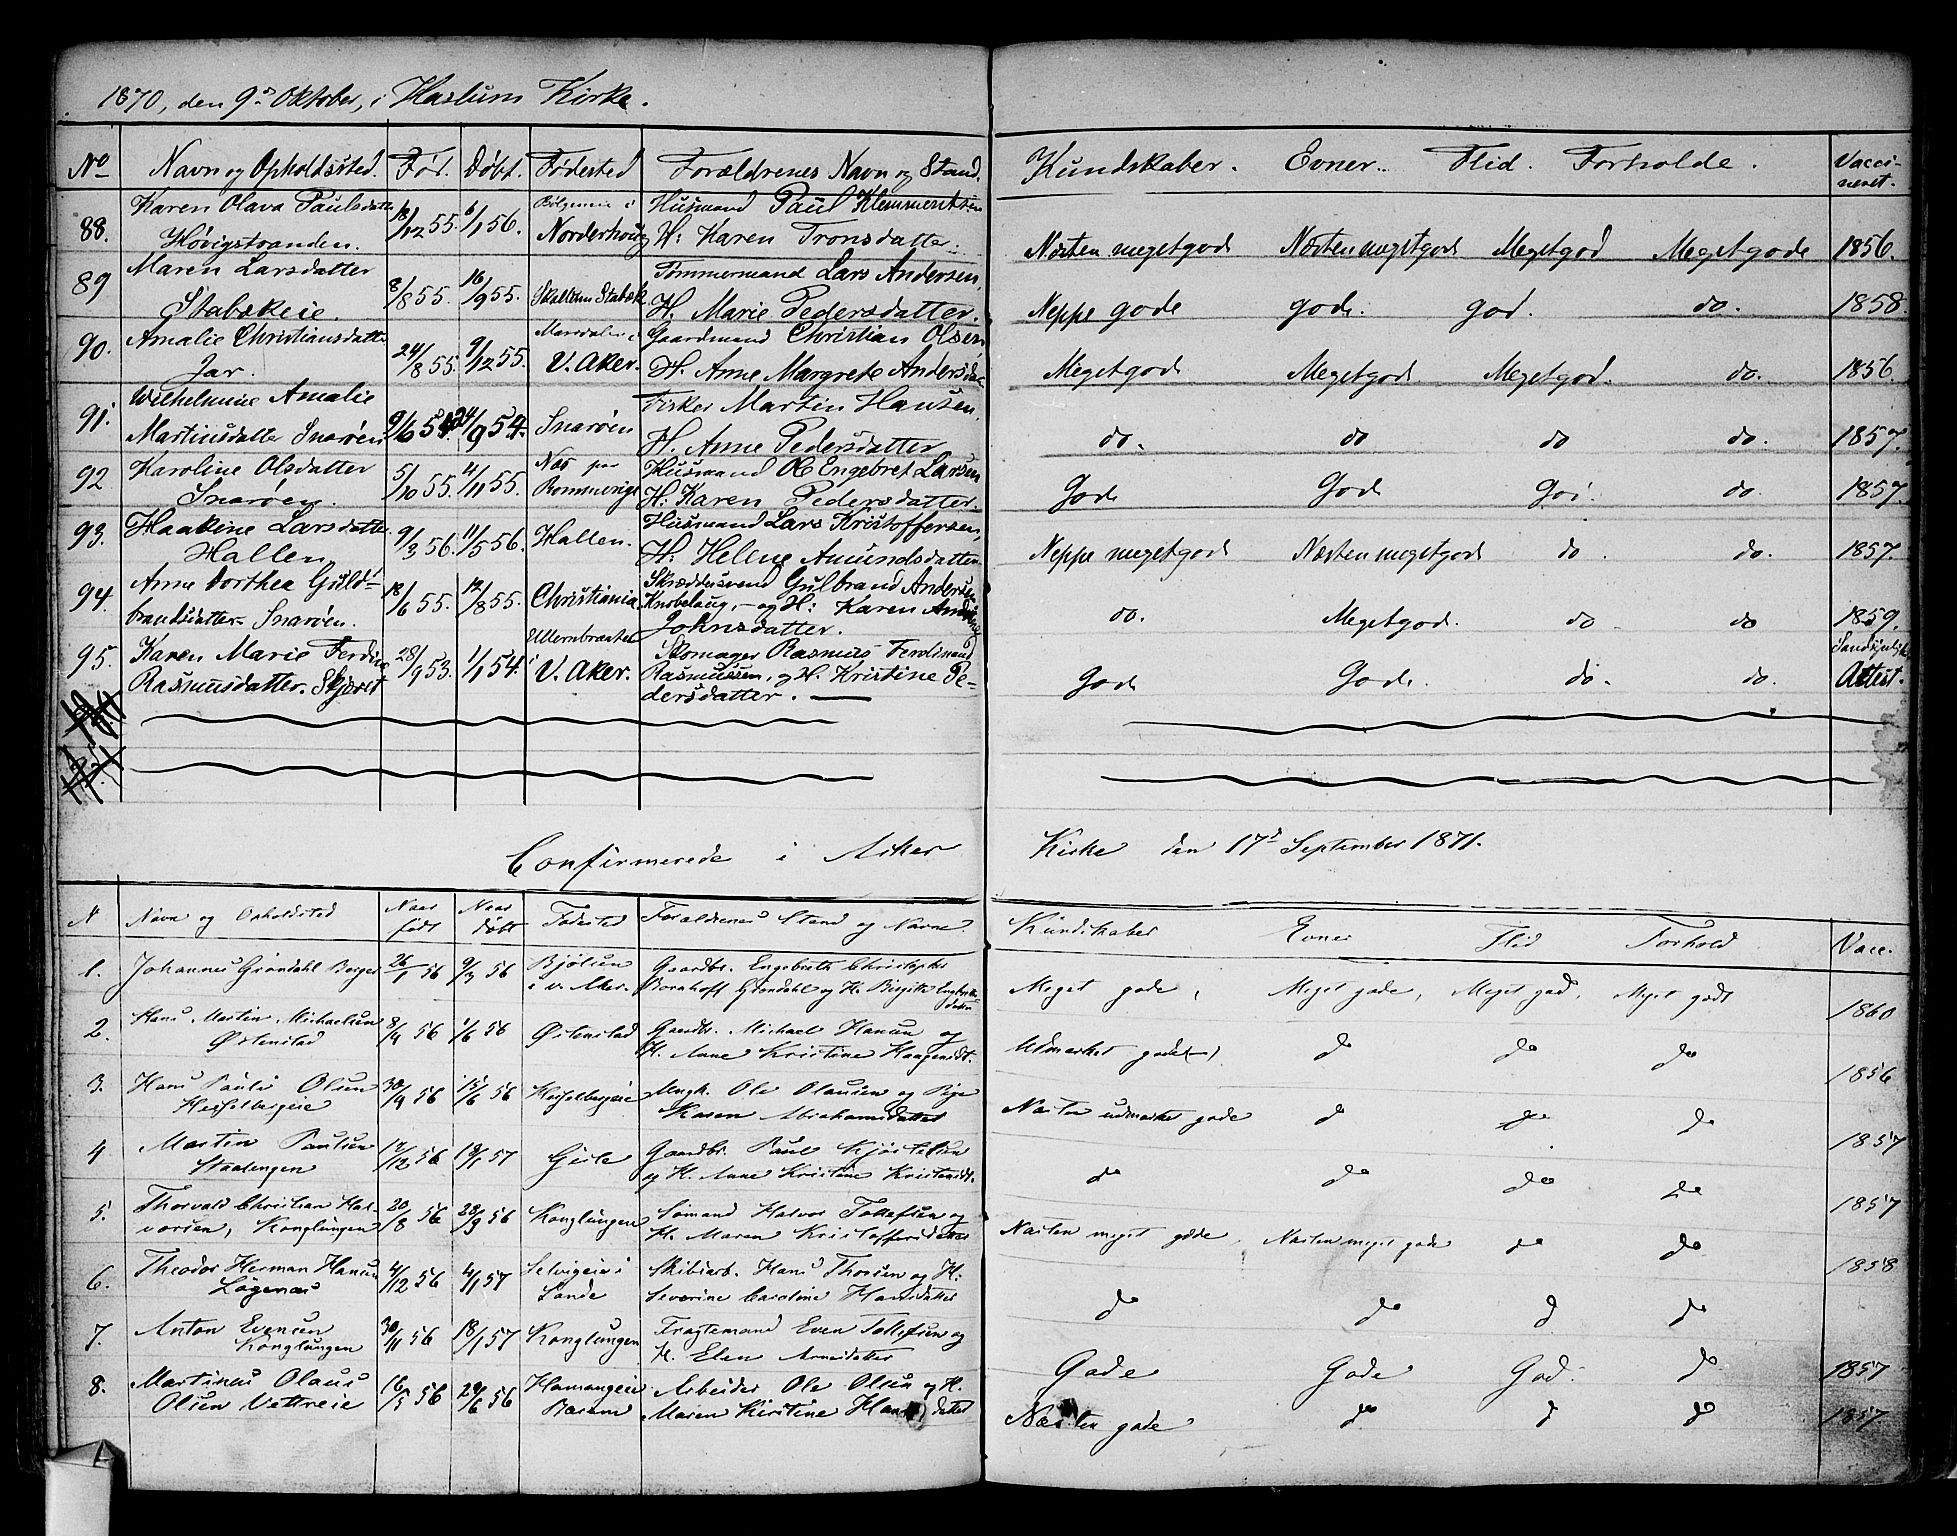 1870, den 9de Oktober, i Haslum Kirke.
No Navn og Opholdssted. Fød. Døbt. Fødested Forældrenes Navn og Stand. Kundskaber. Evner. Flid. Forholde. Vacci-
neret.
88. Karen Olava Paulsdatter 18/12 55. 6/1 56. i Husmand Paul Klemmentsen
Høvigstranden. Norderhoug H: Karen Tronsdatter. Næsten megetgod Næsten megetgod Megetgod Megetgode 1856.
89 Maren Larsdatter 8/8 55. 16/9 55. Skallum Stabæk Tømmermand Lars Andersen,
Stabækeie. H. Marie Pedersdatter. Neppe gode gode. god. do. 1858.
90. Amalie Christiansdatter 24/8 55. 9/12 55. i Gaardmand Christian Olsen
Jar. V. Aker. H. Anne Margrete Andersdat Megetgod Megetgod. Megetgod. do. 1856.
91. Wilhelmine Amalie 9/6 54. 24/9 54. Snarøen Fisker Martin Hansen,
Martinsdatter Snarøen H. Anne Pedersdatter do. do do do. 1857.
92 Karoline Olsdatter 5/10 55. 4/11 55. Næs paa Husmand Ole Engebret Larsen
Snarøen. Rommerige H. Karen Pedersdatter. Gode Gode God. do. 1857.
93. Haakine Larsdatter 9/3 56. 11/5 56. Hallen. Husmand Lars Kristoffersen,
Hallen H: Helene Amundsdatter Neppe megetgod Næsten megetgod do. do. 1857.
94. Anne Dorthea Guld- 18/6 55. 12/8 55. Christiania Skræddersvend Gulbrand Andersen
brandsdatter Snarøen. Knobelaug, - og H: Karen
Johnsdatter. do. Megetgod. do. do 1859.
95. Karen Marie Ferdine 28/9 53. 1/1 54. Ullernbraaten i Skomager Rasmus Ferdinand
Rasmusdatter. Skjæret V. Aker. Rasmussen, og H. Kristine Pe-
dersdatter. Gode Gode. do. do. Attest.
Confirmerede i Asker Kirke den 17de September 1871.
N Navn og Opholdsted Naar født Naar døbt Fødested Forældrenes Stand og Navne. Kundskaber Evner Flid Forhold Vacc.
1. Johannes Grøndahl Borger 26/1 56 9/3 56 Bjølsen Gaardbr. Engebreth Christopher
i v. Aker. Bornhoft Grøndahl og H. Birgitte Engebrets datter Meget gode, Meget gode, Meget god, Meget godt 1860
2. Hans Martin Michaelsen 8/4 56 1/6 56 Østenstad Gaardbr. Michael Hansen og
Østenstad H. Anne Kristine Haagensdt. Udmærket godt do do do 1856
3. Hans Pauli Olsen 30/4 56 15/6 56 Hesselbergeie Ungk. Ole Olausen og Pige
Hesselbergeie Karen Abrahamsdatter Næsten udmærket gode do do do 1857
4 Martin Paulsen 17/12 56 19/1 57 Gisle Gaardbr. Paul Kjøstelsen
Staalengen og H. Anne Kristine Kristensdt. do do do do 1857
5. Thorvald Christian Hal- 20/8 56 28/9 56 Konglungen Sømand Halvor Tollefsen og
vorsen, Konglungen H. Maren Kristoffersdatter Næsten meget gode, Næsten meget gode do do 1858
6. Theodor Herman Hansen 4/12 56 4/1 57 Selvigeie i Skibsarb. Hans Thorsen og H.
Løgenæs Sande Severine Caroline Hansdatter do do do do
7. Anton Evensen 30/11 56 18/1 57 Konglungen Fragtemand Even Tollefsen og
Konglungen H. Elen Arnesdatter Gode Gode God. do 1857
8. Martinus Olaus 16/5 56 29/6 56 Hamangeie Arbeider Ole Olsen og H.
Olsen Vettreeie Bærum Maren Kirstine Hansdatter Næsten gode do do do 1857